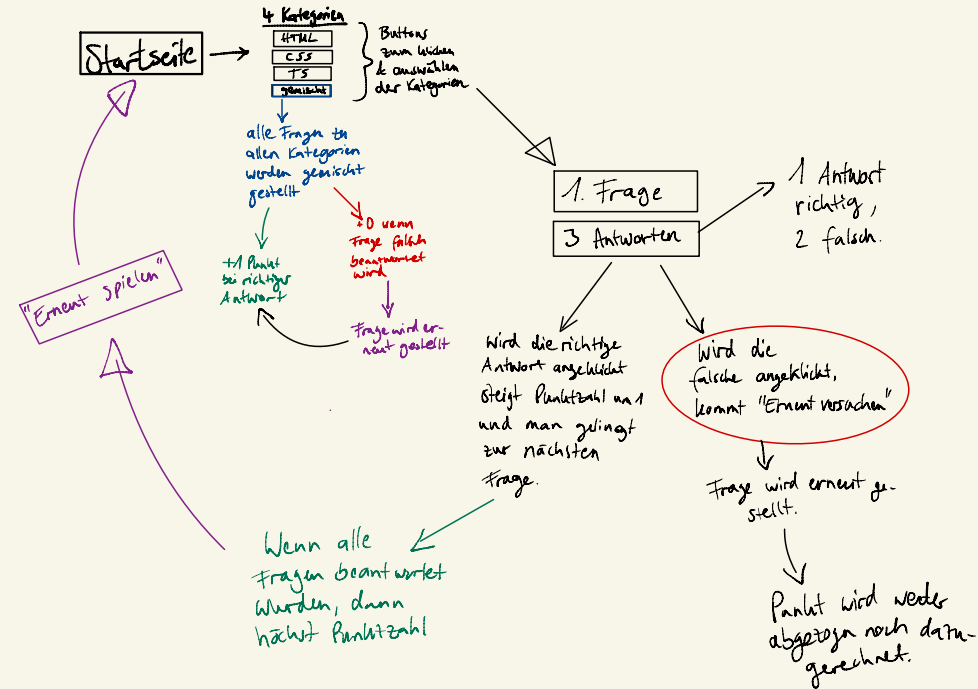 Startseite
4 Kategorien
HTML
CSS
TS
gemischt
Buttons
zum klicken
& auswählen
der Kategorien
alle Fragen zu
allen Kategorien
werden gemischt
gestellt
+1 Punkt
bei richtiger
Antwort
+0 wenn
Frage falsch
beantwortet
wird
Frage wird er-
neut gestellt
1. Frage
3 Antworten
1 Antwort
richtig,
2 falsch.
Wird die richtige
Antwort angeklickt
steigt Punktzahl um 1
und man gelingt
zur nächsten
Frage.
Wird die
falsche angeklickt,
kommt "Erneut versuchen"
Frage wird erneut ge-
stellt.
Punkt wird weder
abgezogn noch dazu-
gerechnet.
Wenn alle
Fragen beantwortet
wurden, dann
höchst Punktzahl
"Erneut spielen"